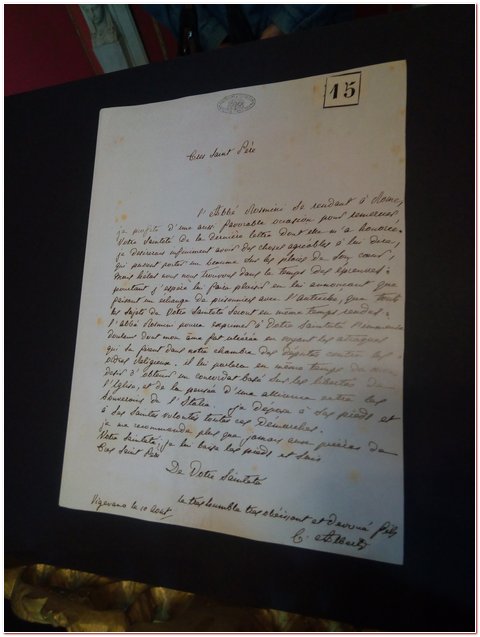 15
Très Saint Père
l'Abbé Rosmini se rendant à Rome,
je profite d'une aussi favorable occasion pour remercier
Votre Sainteté de la dernière lettre dont elle m'a honoré.
je desirerais infiniment avoir des choses agréables à lui dire,
qui pussent porter un beaume sur les plaies de son cœur,
mais hélas nous nous trouvons dans le temps des épreuves.
pourtant j'espère lui faire plaisir en lui annonçant que
faisant un échange de prisonniers avec l'Autriche, que tous
les sujets de Votre Sainteté seront en même temps rendus.
l'abbé Rosmini pourra exprimer à Votre Sainteté l'immense
douleur dont mon âme fut ulcérée en voyant les attaques
qui se firent dans notre chambre des députés contre les
ordres religieux. il lui parlera en même temps du
desir d'obtenir un concordat basé sur les libertés de
l'Eglise, et de la pensée d'une alliance entre les
Souverains de l'Italie. je depose à Ses pieds et
à Ses Saintes volontés toutes ces démarches.
je me recommande plus que jamais aux prières de
Votre Sainteté; je lui baise les pieds et suis
Très Saint Père
De Votre Sainteté
le très humble très obéissant et devoué fils
Vigevano le 10 Août.
C. Albert